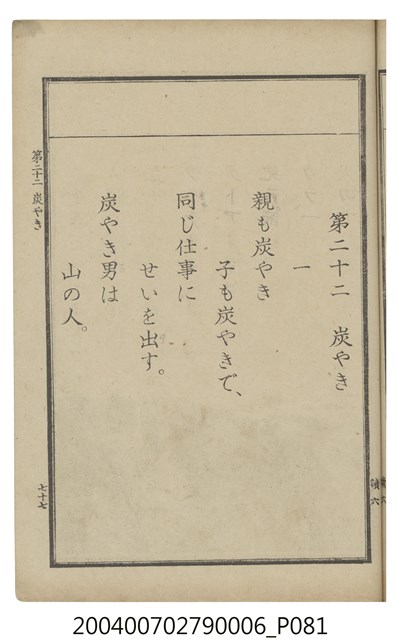 第二十二 炭やき
一
親も炭やき
子も炭やきで、
同じ仕事に
せいを出す。
炭やき男は
山の人。
第二十二 炭やき
七十七
200400702790006_P081